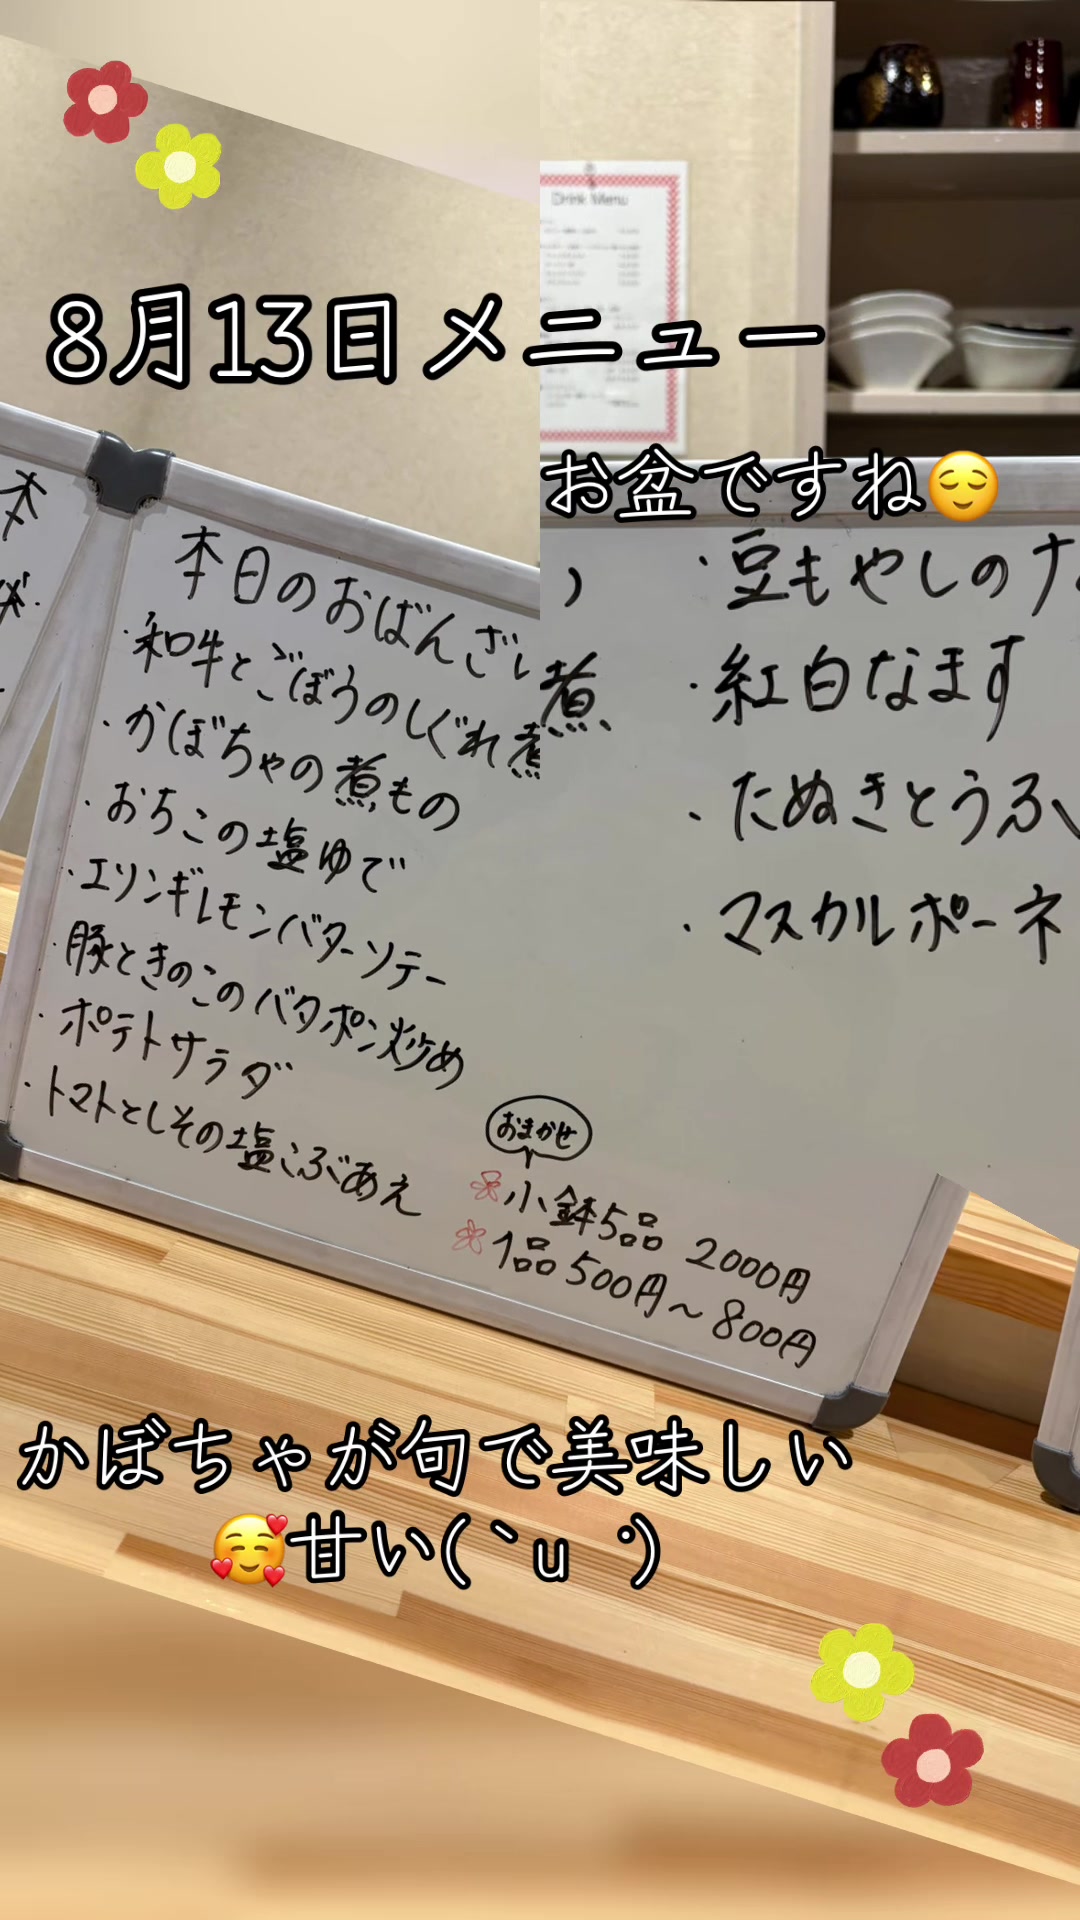 8月13日メニュー
お盆ですね😌
Drink Menu
本日のおばんざい
・和牛とごぼうのしぐれ煮
・かぼちゃの煮もの
・おちこの塩ゆで
・エリンギレモンバターソテー
・豚ときのこのバタポン炒め
・ポテトサラダ
・トマトとしその塩こぶあえ
煮
・豆もやしのナ
・紅白なます
・たぬきとうふ
・マスカルポーネ
おまかせ
小鉢5品 2000円
1品500円～800円
かぼちゃが旬で美味しい
🥰甘い(｀u ´)